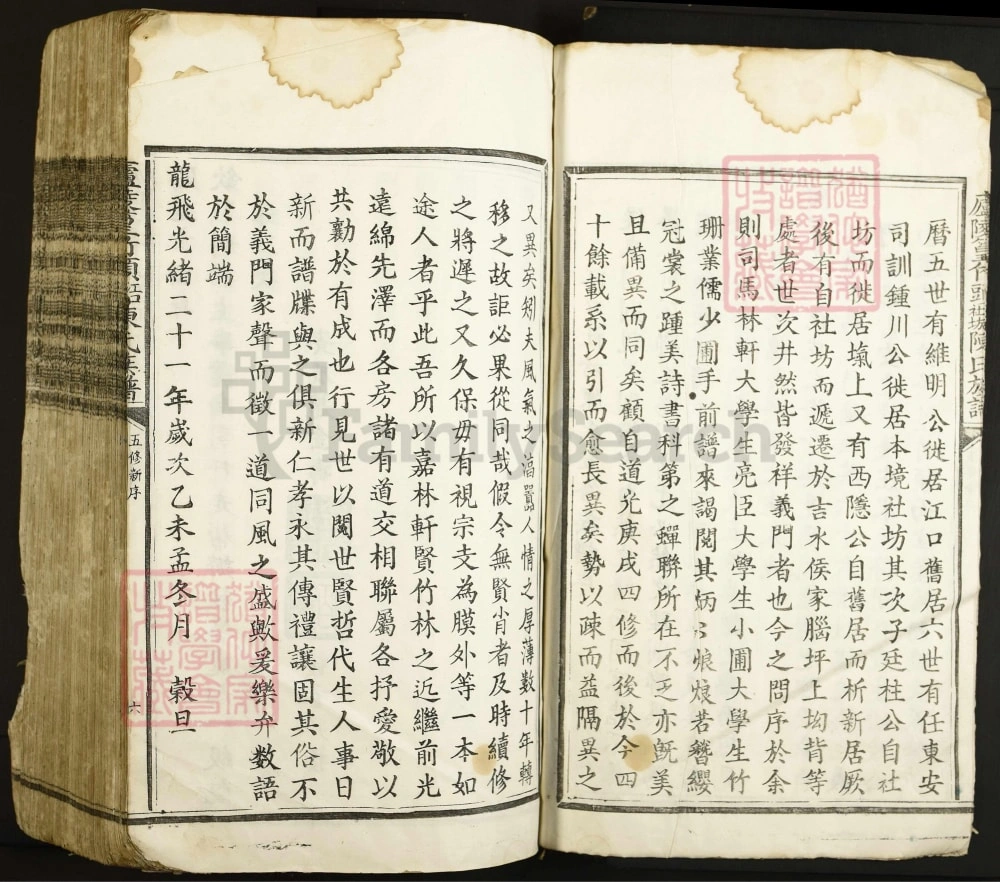 曆五世有維明公徙居江口舊居六世有任東安
司訓鍾川公徙居本境社坊其次子廷柱公自社
坊而徙居塲上又有西隱公自舊居而析新居厥
後有自社坊而遞遷於吉水侯家腦坪上坳背等
處者世次井然皆發祥義門者也今之問序於余
則司馬林軒大學生亮臣大學生小圃大學生竹
珊業儒少圃手前譜來謁閱其炳炳烺烺若簪纓
冠裳之踵美詩書科第之蟬聯所在不乏亦旣美
且備異而同矣顧自道光庚戌四修而後於今四
十餘載系以引而愈長異矣勢以疎而益隔異之
又異矣矧夫風氣之澆囂人情之厚薄數十年轉
移之故詎必果從同哉假令無賢肖者及時續修
之將遲之又久保毋有視宗支為膜外等一本如
途人者乎此吾所以嘉林軒賢竹林之近繼前光
遠綿先澤而各房諸有道交相聯屬各抒愛敬以
共勷於有成也行見世以閱世賢哲代生人事日
新而譜牒與之俱新仁孝永其傳禮讓固其俗不
於義門家聲而徵一道同風之盛歟爰樂弁数語
於簡端
龍飛光緒二十一年歲次乙未孟冬月 穀旦
五修新序
六
FamilySearch